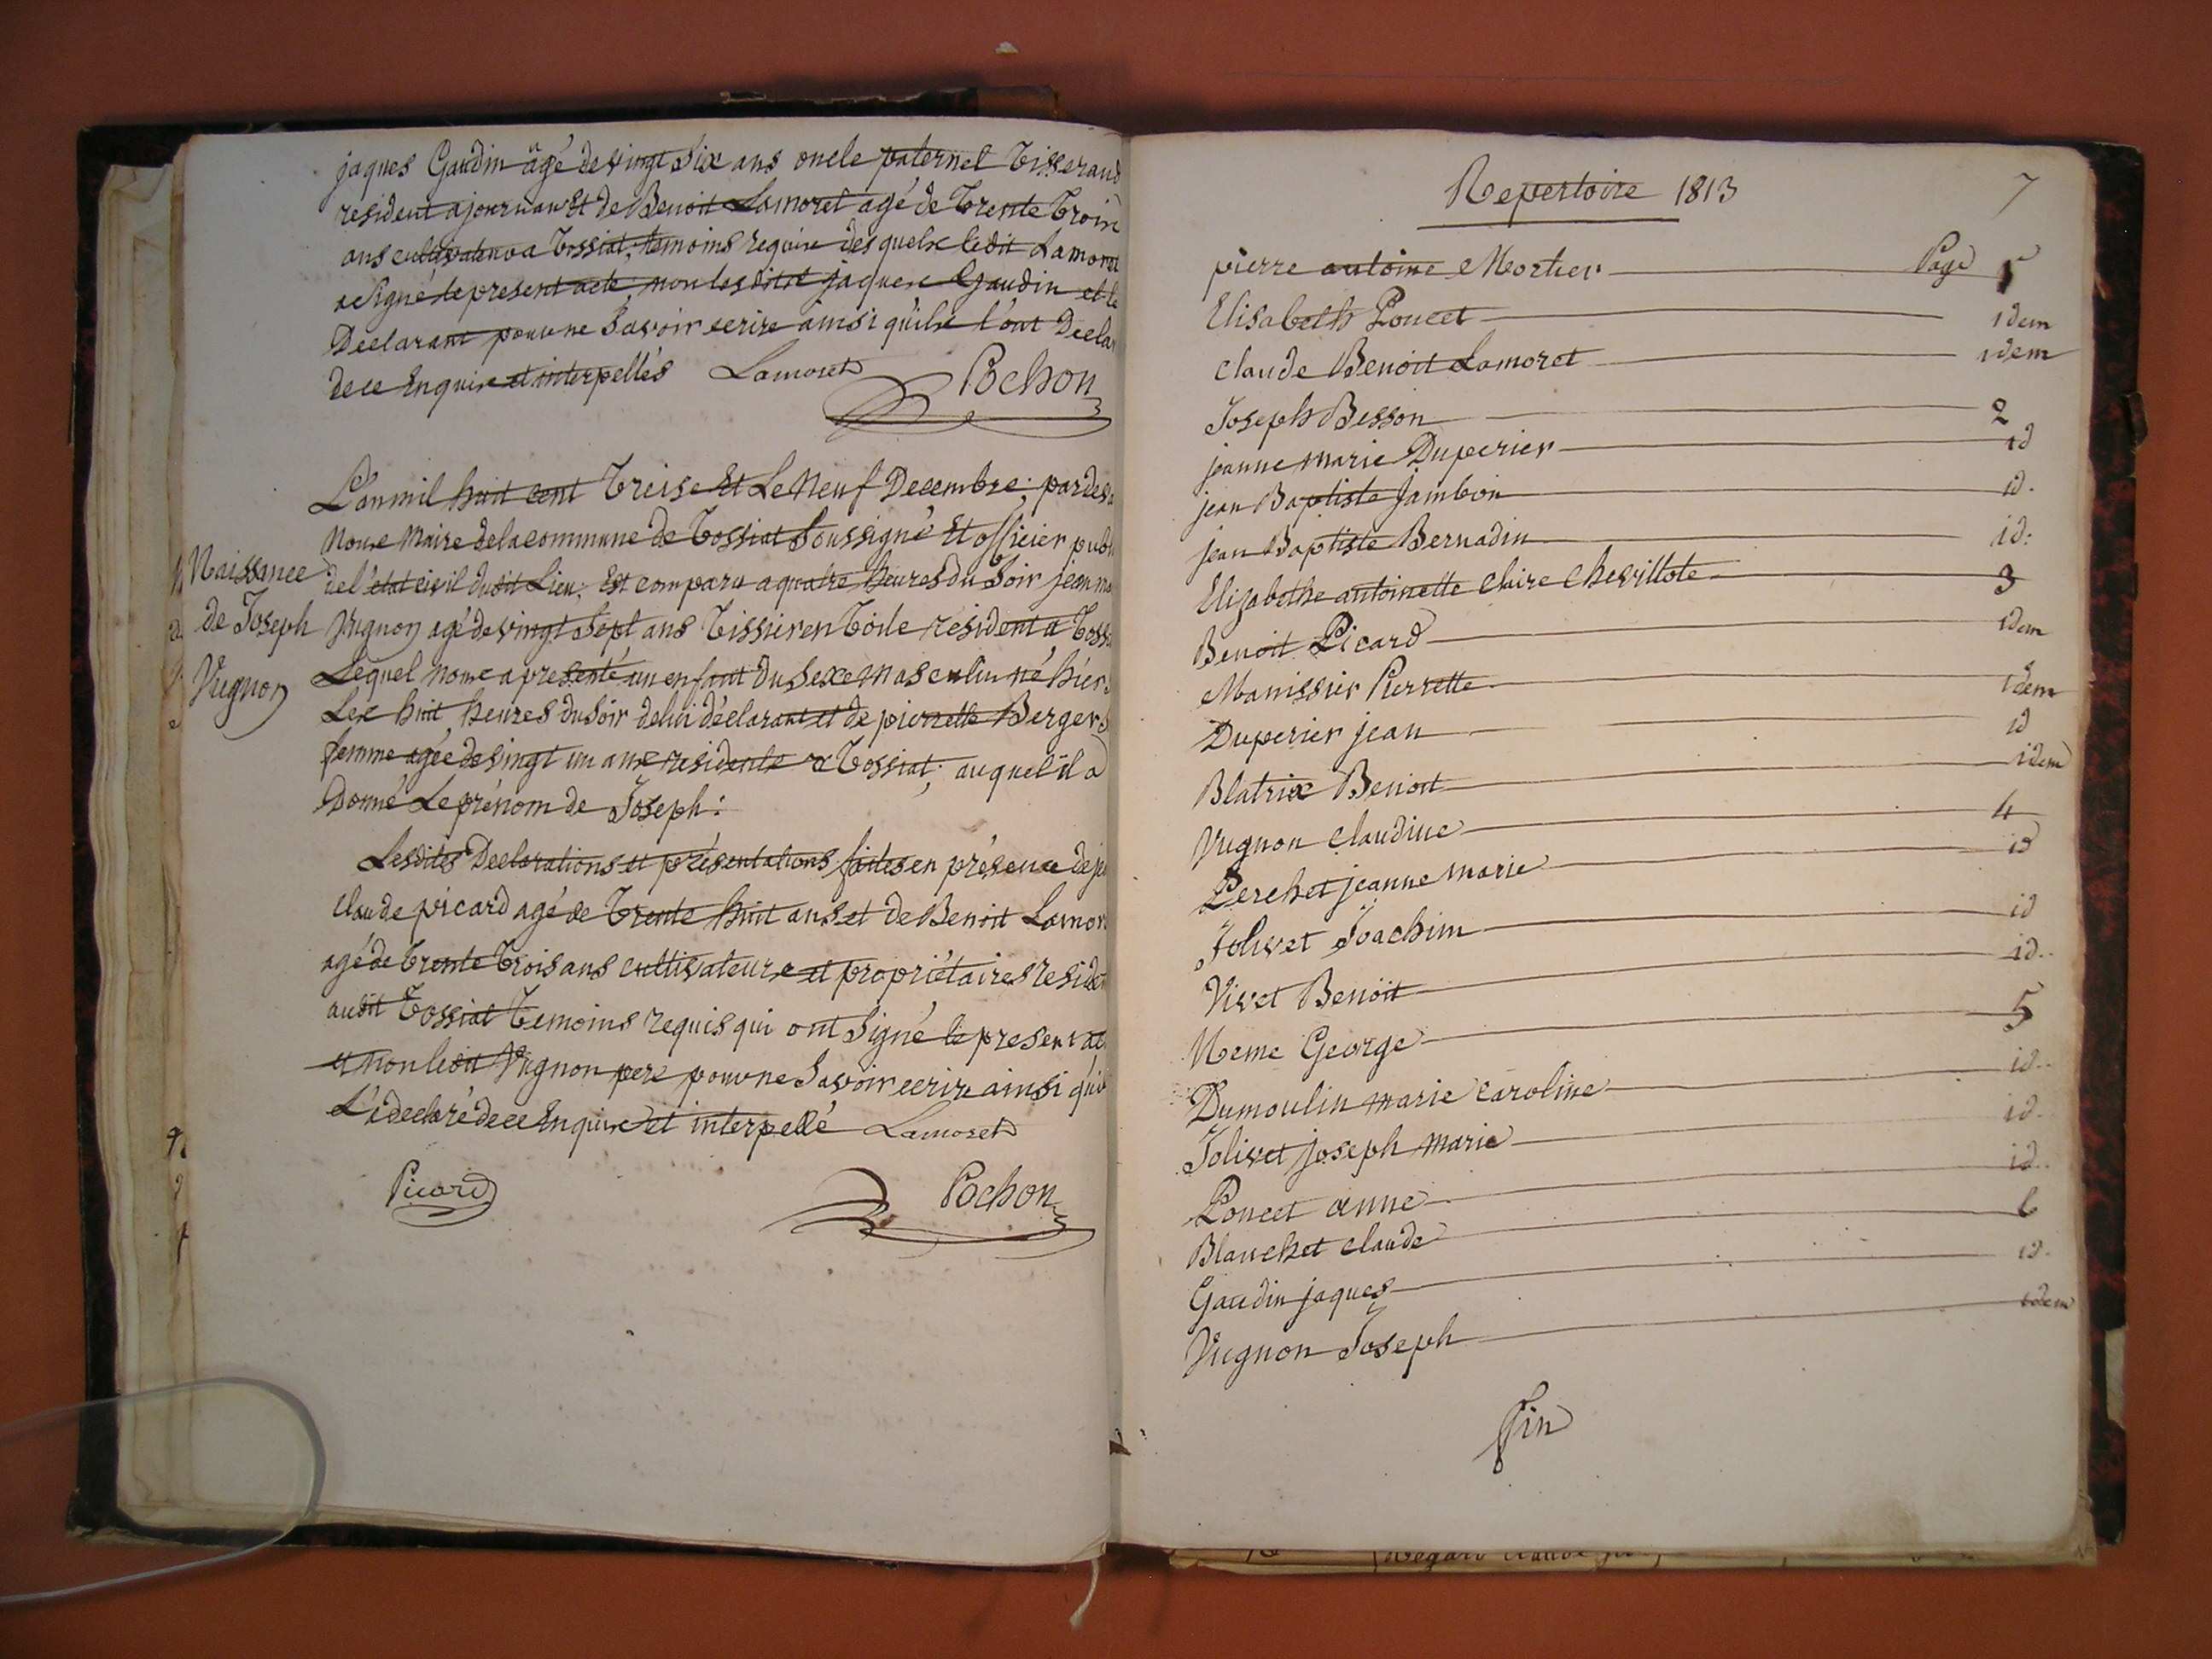 jaques Gaudin âgé de vingt Six ans oncle paternel Tisserand
resident a journan Et de Benoit Lamoret agé de Trente Trois
ans cultivateur a Tossiat, temoins requis desquels ledit Lamoret
a Signé le present acte, non lesdits jaques Gaudin et le
Declarant pour ne Savoir ecrire ainsi qu'ils l'ont Decla
de ce Enquis et interpellés Lamoret
Pochon
L'an mil huit cent Treise Et Le Neuf Decembre; pardev
Nous Maire de la commune de Tossiat Soussigné Et officier publ
Naissance
de Joseph
Vugnon
de l'état civil dudit Lieu; Est comparu a quatre heures du Soir jean m
Vugnon agé de vingt Sept ans Tissier en Toile resident a Toss
Lequel nous a presenté un enfant du Sexe Masculin né hier
Les huit heures du Soir de lui déclarant et de pierrette Berger S
femme agée de vingt un ans residents a Tossiat; auquel il a
Donné Le prénom de Joseph:
Lesdites Declarations et présentations faites en présence de j
Claude picard agé de Trente huit ans et de Benoit Lamor
agé de trente Trois ans cultivateurs et propriétaires resident
audit Tossiat Temoins requis qui ont Signé le present act
et non ledit Vugnon pere pour ne Savoir ecrire ainsi qu'il
L'a declaré de ce Enquis et interpellé Lamoret
Picard
Pochon
Repertoire 1813
7
pierre antoine Mortier Page 1
Elisabeth Poncet idem
Claude Benoit Lamoret idem
Joseph Besson 2
jeanne Marie Duperier id
jean Baptiste Jambon id.
jean Baptiste Bernadin id:
Elizabethe antoinette Claire Chevillote 3
Benoit Picard idem
Manissier Pierrette idem
Duperier jean id
Blatrix Benoit idem
Vugnon Claudine 4
Perchet jeanne Marie id
Jolivet Joachim id
Vivet Benoit id..
Neme George 5
Dumoulin Marie Caroline id..
Jolivet joseph Marie id.
Poncet anne id..
Blanchet Claude 6
Gaudin jaques id.
Vugnon Joseph idem
fin